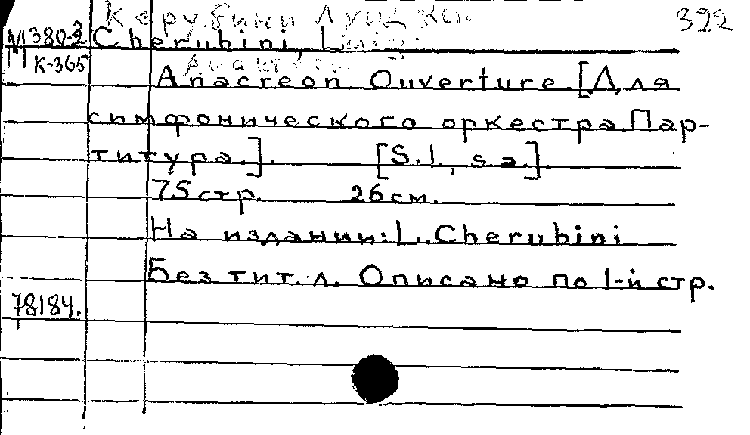 Керубини Луиджи 322
М 380-3 Cherubini, L
К-365
Anacreon Ouverture [Для
симфонического оркестра Пар-
титура.]. [S.l., s.a.].
75 стр. 26 см.
На издании: L. Cherubini
Без тит. л. Описано по 1-й стр.
78184.